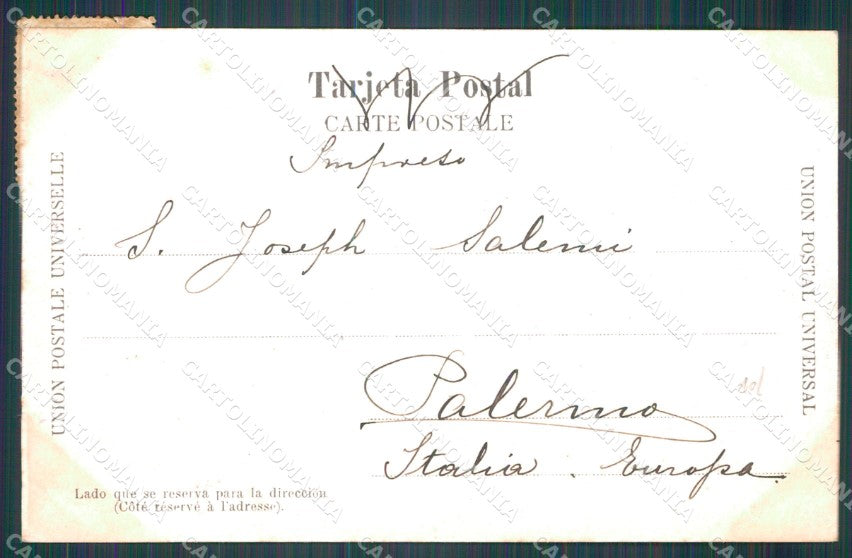 Tarjeta Postal
CARTE POSTALE
Impreso
S. Joseph Salemi
Palermo
Italia . Europa.
UNION POSTALE UNIVERSELLE
UNION POSTAL UNIVERSAL
Lado que se reserva para la dirección
(Côté réservé à l'adresse).
CARTOLINOMANIA